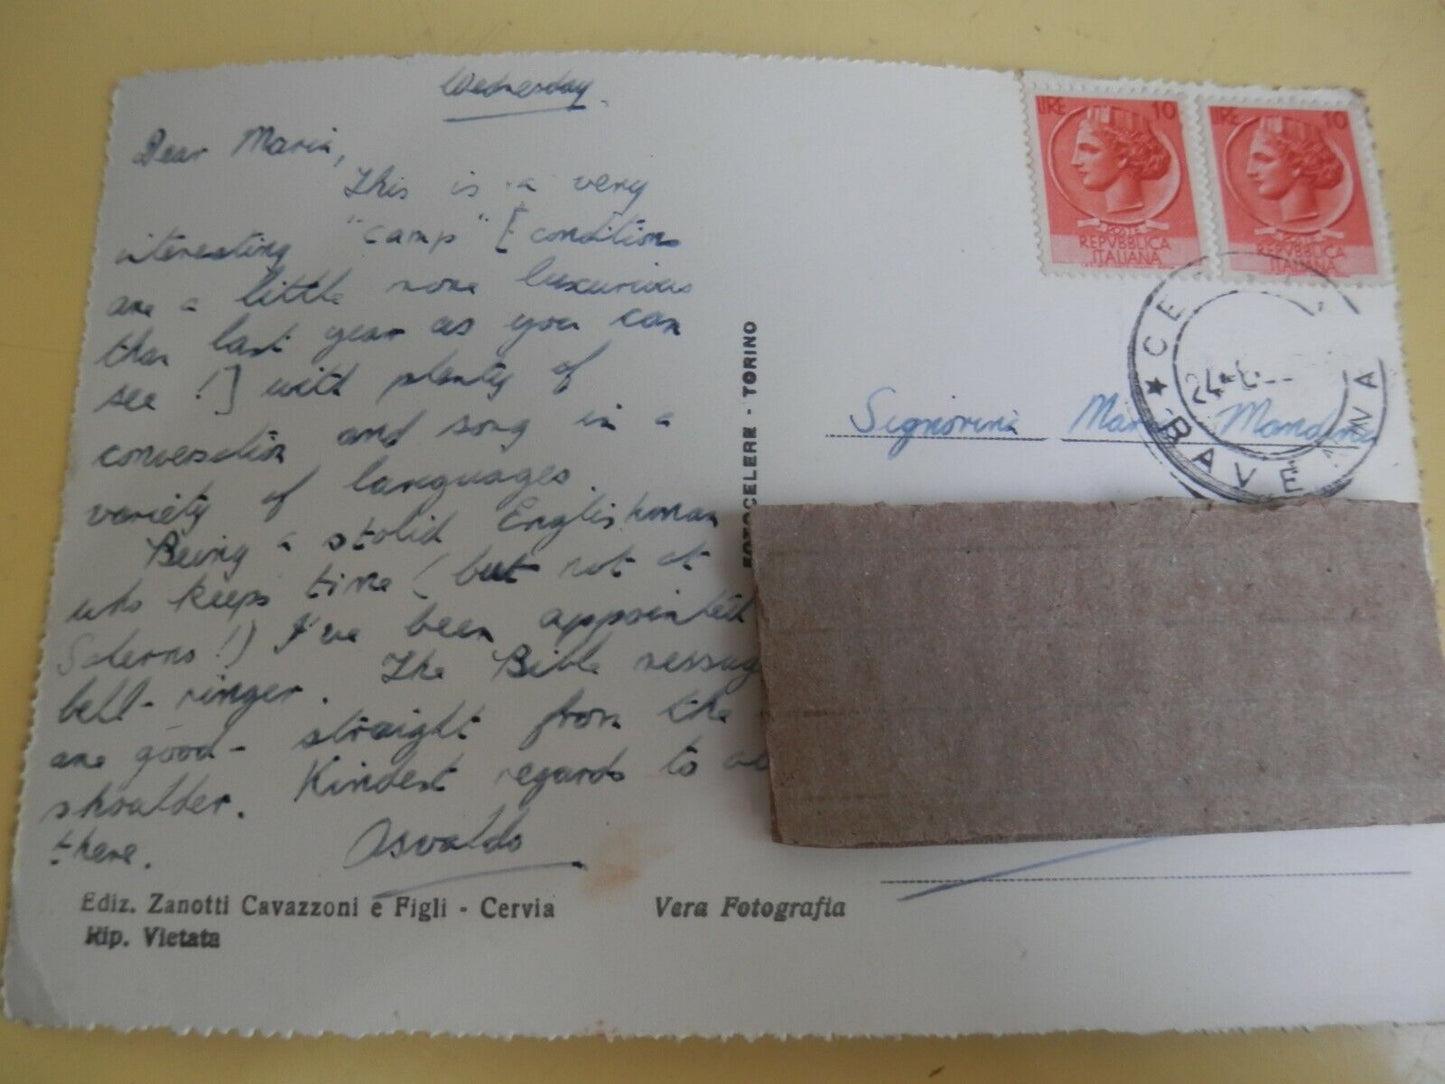 Wednesday.
Dear Maria,
This is a very
interesting "camp" [conditions
are a little more luxurious
than last year as you can
see!] with plenty of
conversation and song in a
variety of languages.
Being a stolid Englishman
who keeps time (but not at
Salerno!) I've been appointed
bell-ringer. The Bible messag
are good - straight from the
shoulder. Kindest regards to
there.
Osvaldo
Ediz. Zanotti Cavazzoni e Figli - Cervia
Rip. Vietata
Vera Fotografia
FOTOCELERE - TORINO
LIRE 10
POSTE
REPVBBLICA
ITALIANA
LIRE 10
POSTE
REPVBBLICA
ITALIANA
Signorina